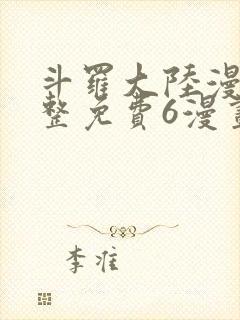 斗羅大陸漫
整免費6漫畫
李准